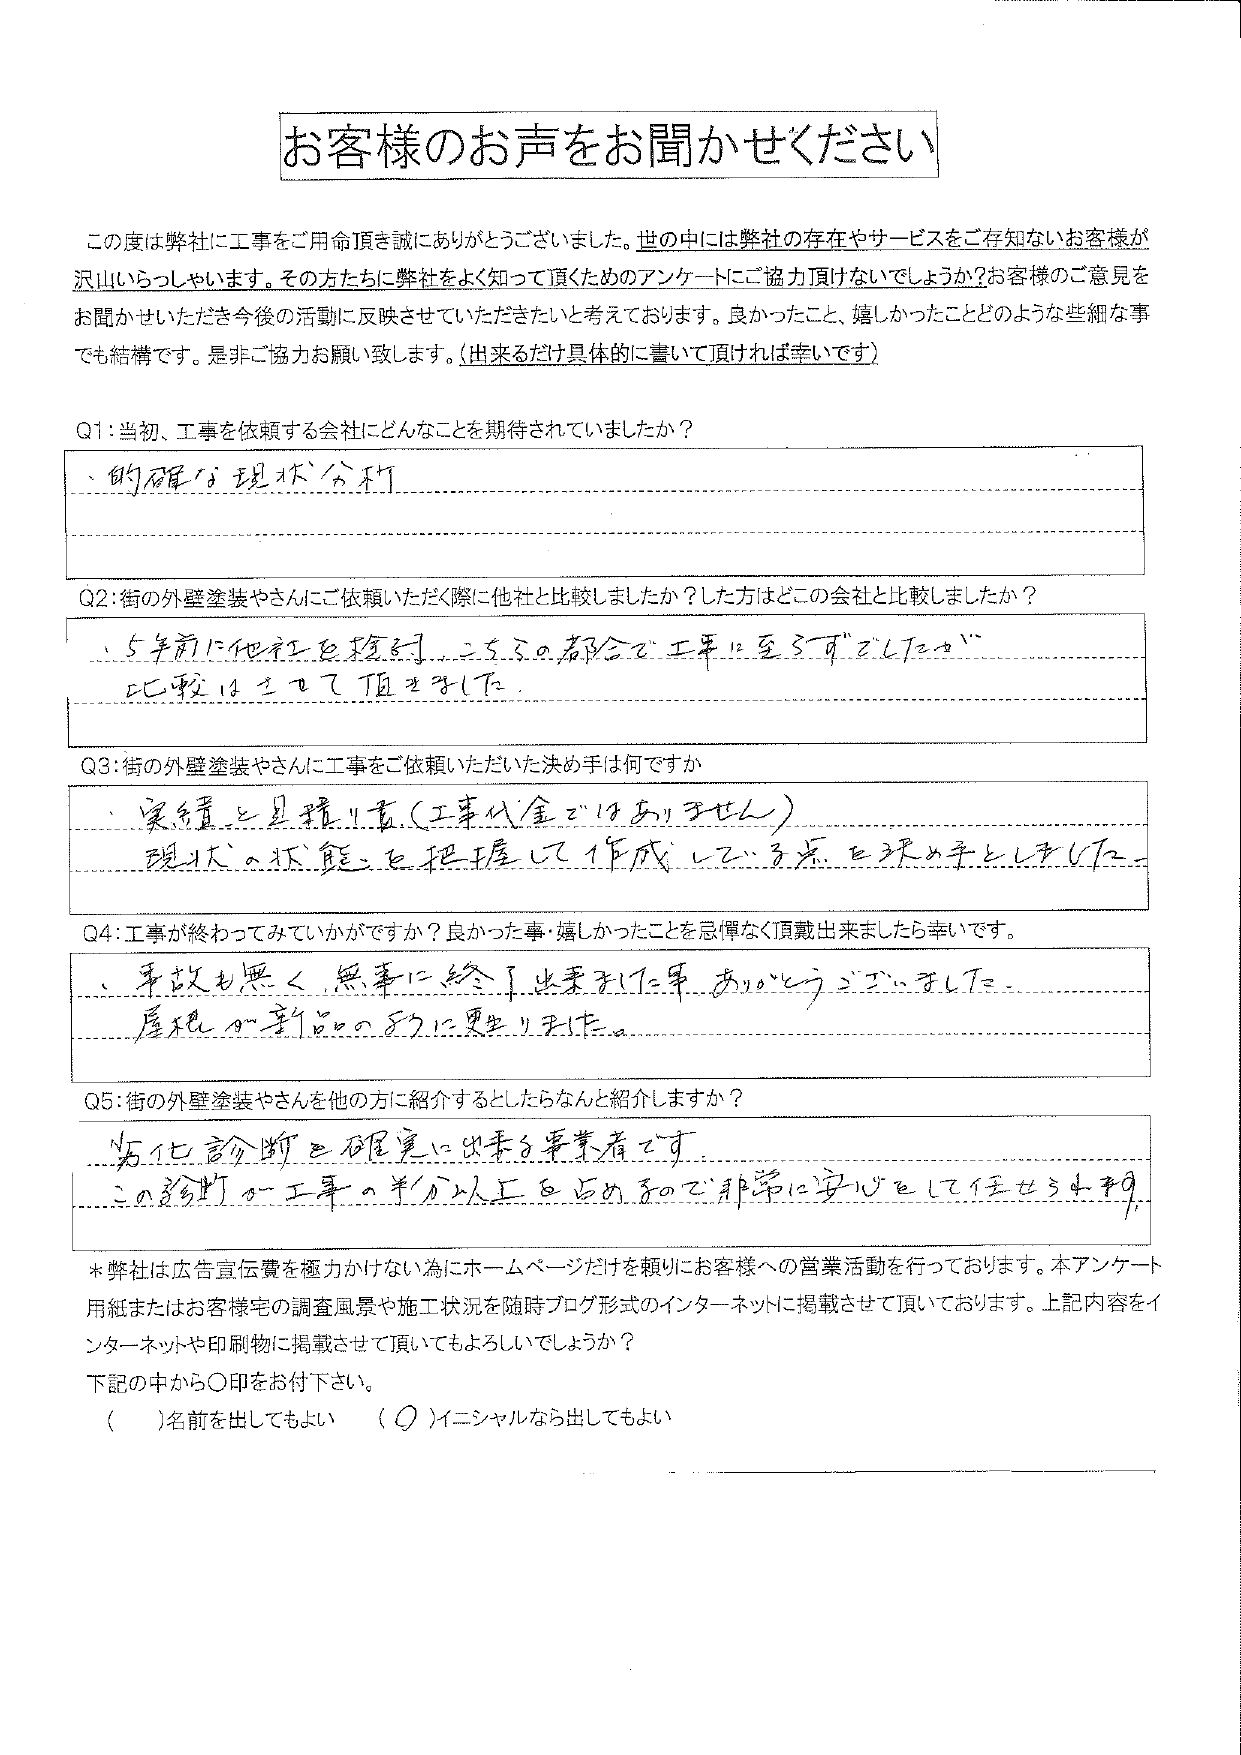 お客様のお声をお聞かせください
この度は弊社に工事をご用命頂き誠にありがとうございました。世の中には弊社の存在やサービスをご存知ないお客様が
沢山いらっしゃいます。その方たちに弊社をよく知って頂くためのアンケートにご協力頂けないでしょうか?お客様のご意見を
お聞かせいただき今後の活動に反映させていただきたいと考えております。良かったこと、嬉しかったことどのような些細な事
でも結構です。是非ご協力お願い致します。(出来るだけ具体的に書いて頂ければ幸いです)
Q1:当初、工事を依頼する会社にどんなことを期待されていましたか?
、的確な現状分析
Q2:街の外壁塗装やさんにご依頼いただく際に他社と比較しましたか?した方はどこの会社と比較しましたか?
、5年前に他社を検討、こちらの都合で工事に至らずでしたが
比較はさせて頂きました.
Q3:街の外壁塗装やさんに工事をご依頼いただいた決め手は何ですか
・実績と見積り書、(工事代金ではありません)
現状の状態を把握して作成している点を決め手としました。
Q4:工事が終わってみていかがですか?良かった事・嬉しかったことを忌憚なく頂戴出来ましたら幸いです。
、事故も無く、無事に終了出来ました事ありがとうございました.
屋根が新品のように更りました。
Q5:街の外壁塗装やさんを他の方に紹介するとしたらなんと紹介しますか?
劣化診断を確実に出来る事業者です.
この診断が工事の半分以上を占めるので非常に安心をして任せられます.
*弊社は広告宣伝費を極力かけない為にホームページだけを頼りにお客様への営業活動を行っております。本アンケート
用紙またはお客様宅の調査風景や施工状況を随時ブログ形式のインターネットに掲載させて頂いております。上記内容をイ
ンターネットや印刷物に掲載させて頂いてもよろしいでしょうか?
下記の中から〇印をお付下さい。
( )名前を出してもよい (〇)イニシャルなら出してもよい